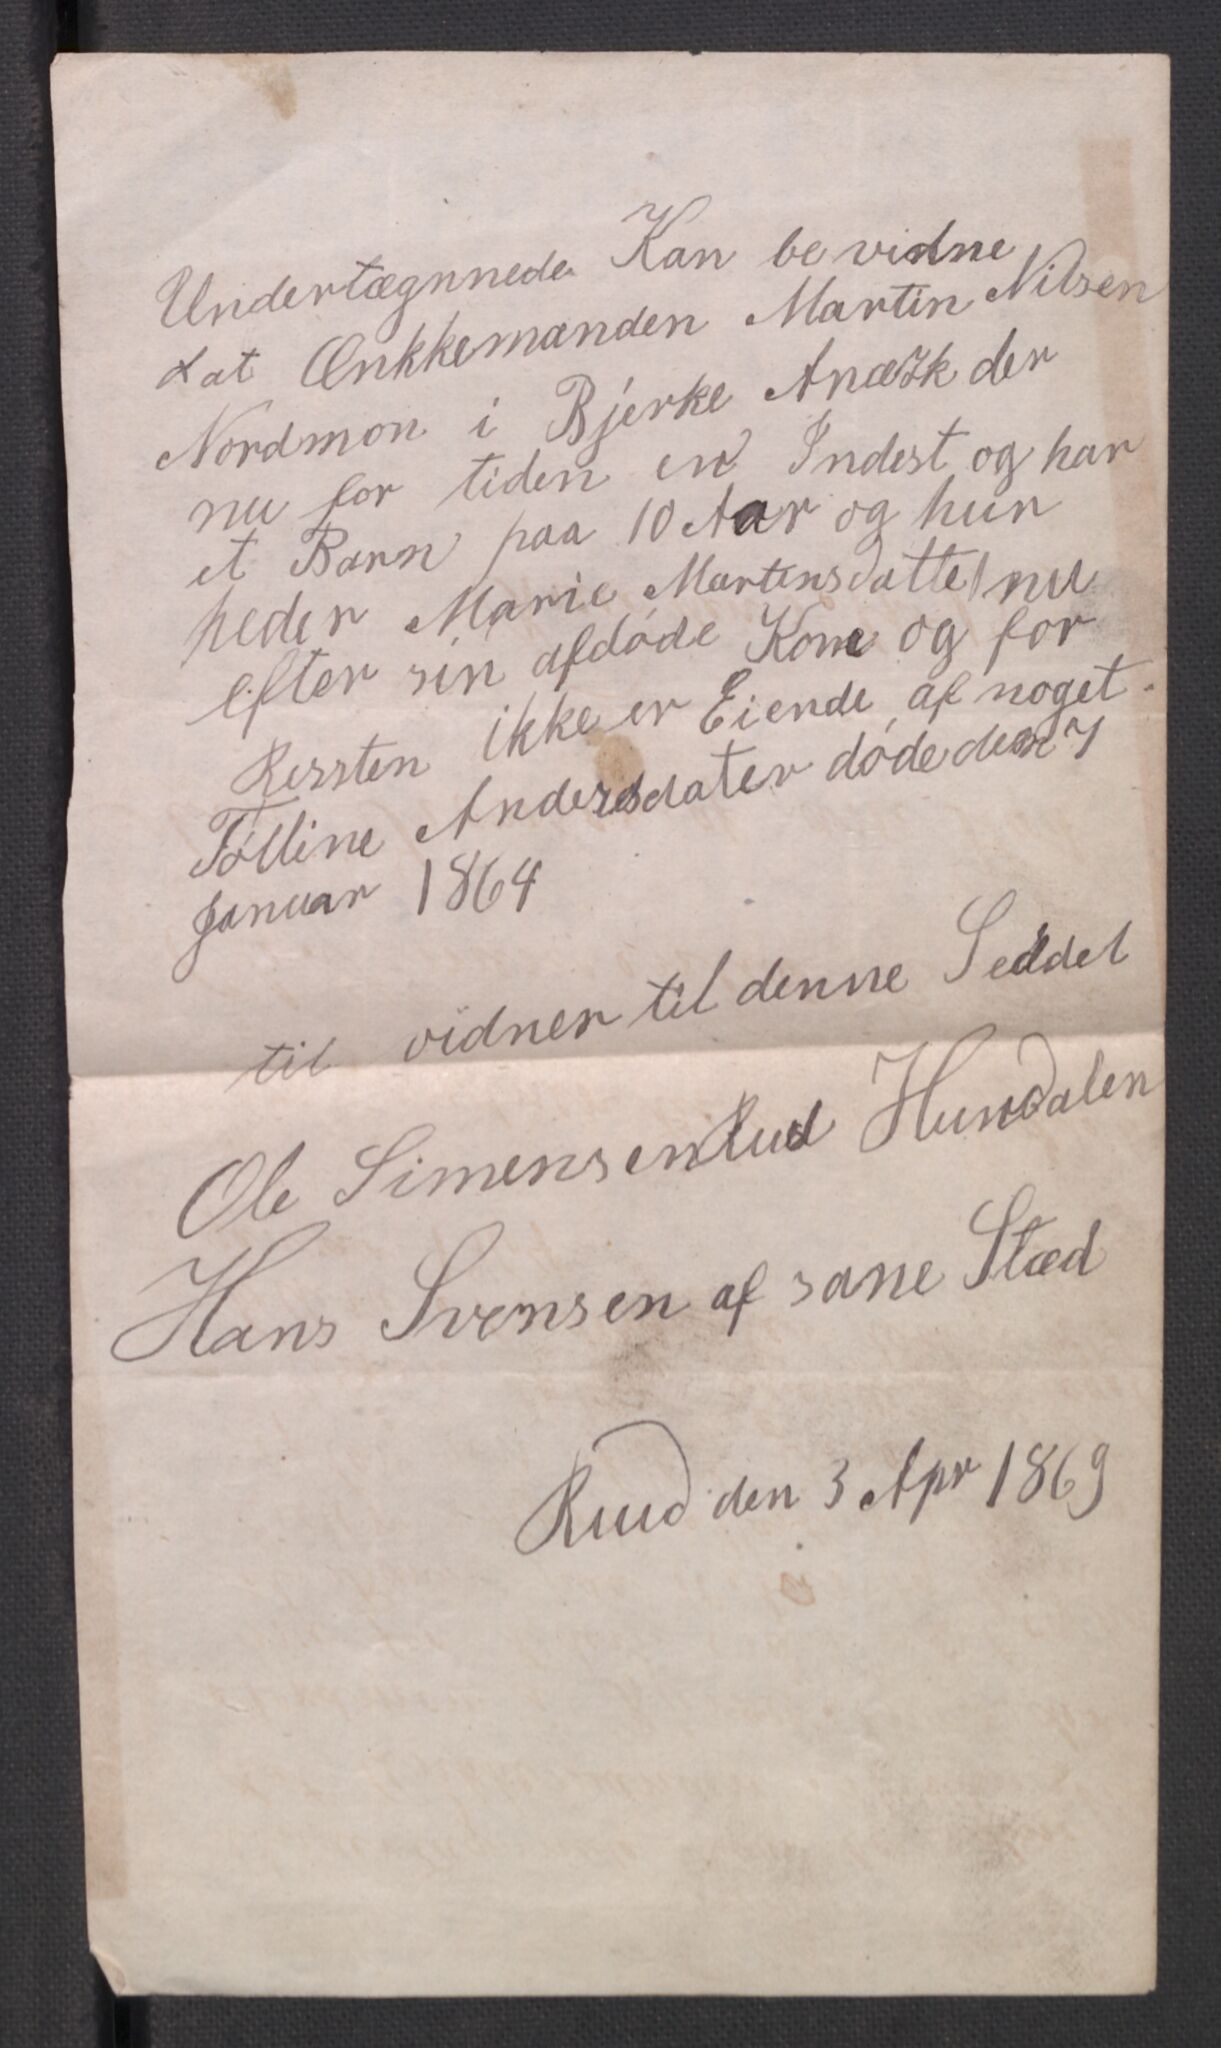 Undertægnnede Kan be vidne
at Œnkkemanden Martin Nilsen
Nordmon i Bjerke Anæxk der
nu for tiden en Indest og har
et Barn paa 10 Aar og hun
heder Marie Martinsdatter nu
efter sin afdøde Kone og for
Ressten ikke er Eiende af noget.
Tolline Andersdater døde den 7
Januar 1864
til vidner til denne Seddel
Ole Simensen Rud Hundalen
Hans Svensen af sane Stæd
Ruud den 3 Apr 1869